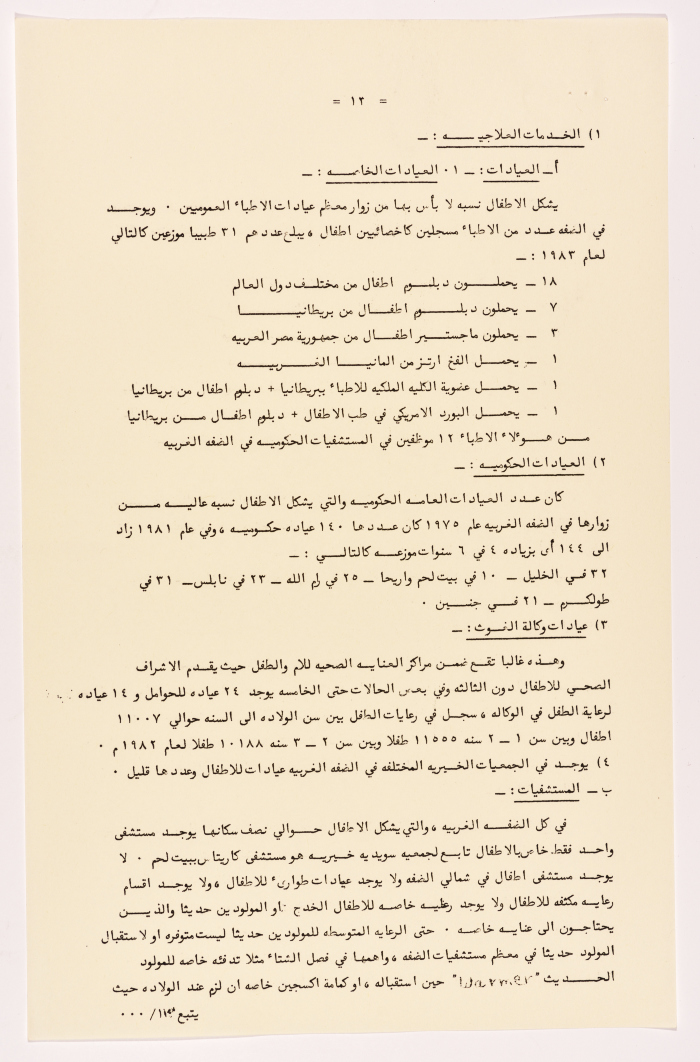 = ١٢ =
١) الخدمات العلاجيه : ـ
أ ـ العيادات : ـ ٠١ العيادات الخاصه : ـ
يشكل الاطفال نسبه لا بأس بها من زوار معظم عيادات الاطباء العموميين ٠ ويوجد
في الضفه عدد من الاطباء مسجلين كاخصائيين اطفال ، يبلغ عددهم ٣١ طبيبا موزعين كالتالي
لعام ١٩٨٣ : ـ
١٨ ـ يحملون دبلوم اطفال من مختلف دول العالم
٧ ـ يحملون دبلوم اطفال من بريطانيا
٣ ـ يحملون ماجستير اطفال من جمهورية مصر العربيه
١ ـ يحمل الفخ ارتز من المانيا الغربيه
١ ـ يحمل عضوية الكليه الملكيه للاطباء ببريطانيا + دبلوم اطفال من بريطانيا
١ ـ يحمل البورد الامريكي في طب الاطفال + دبلوم اطفال من بريطانيا
من هوءلاء الاطباء ١٢ موظفين في المستشفيات الحكوميه في الضفه الغربيه
٢) العيادات الحكوميه : ـ
كان عدد العيادات العامه الحكوميه والتي يشكل الاطفال نسبه عاليه من
زوارها في الضفه الغربيه عام ١٩٧٥ كان عددها ١٤٠ عياده حكوميه ، وفي عام ١٩٨١ زاد
الى ١٤٤ أى بزياده ٤ في ٦ سنوات موزعه كالتالي : ـ
٣٢ في الخليل ـ ١٠ في بيت لحم واريحا ـ ٢٥ في رام الله ـ ٢٣ في نابلس ـ ٣١ في
طولكرم ـ ٢١ في جنين ٠
٣) عيادات وكالة الغوث : ـ
وهذه غالبا تقع ضمن مراكز العنايه الصحيه للام والطفل حيث يقدم الاشراف
الصحي للاطفال دون الثالثه وفي بعض الحالات حتى الخامسه يوجد ٢٤ عياده للحوامل و ١٤ عياده
لرعاية الطفل في الوكاله ، سجل في رعايات الطفل بين سن الولاده الى السنه حوالي ١١٠٠٧
اطفال وبين سن ١ ـ ٢ سنه ١١٥٥٥ طفلا وبين سن ٢ ـ ٣ سنه ١٠١٨٨ طفلا لعام ١٩٨٢ م ٠
٤) يوجد في الجمعيات الخيريه المختلفه في الضفه الغربيه عيادات للاطفال وعددها قليل ٠
ب ـ المستشفيات : ـ
في كل الضفه الغربيه ، والتي يشكل الاطفال حوالي نصف سكانها يوجد مستشفى
واحد فقط خاص بالاطفال تابع لجمعيه سويديه خيريه هو مستشفى كاريتاس ببيت لحم ٠ لا
يوجد مستشفى اطفال في شمالي الضفه ولا يوجد عيادات طوارىء للاطفال ، ولا يوجد اقسام
رعايه مكثفه للاطفال ولا يوجد رعايه خاصه للاطفال الخدج او المولودين حديثا والذين
يحتاجون الى عنايه خاصه ٠ حتى الرعايه المتوسطه للمولودين حديثا ليست متوفره او لاستقبال
المولود حديثا في معظم مستشفيات الضفه ، واهمها في فصل الشتاء مثلا تدفئه خاصه للمولود
الحديث " " حين استقباله ، او كمامة اكسجين خاصه ان لزم عند الولاده حيث
يتبع /١١ ٠٠٠